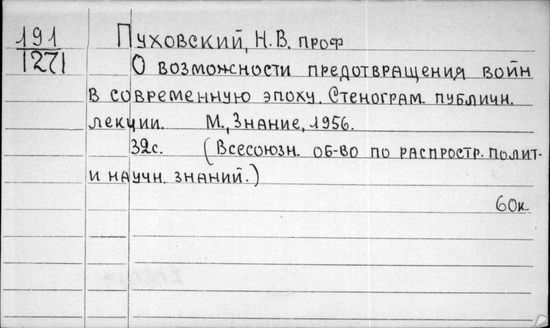 191 Пуховский, Н.В. проф
1271 О возможности предотвращения войн
в современную эпоху. Стенограм. публичн.
лекции. М., Знание, 1956.
32с. (Всесоюзн. об-во по распростр. полит-
и научн. знаний.)
60к